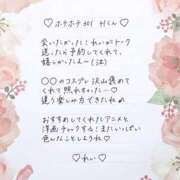 ♡ ホテホテ 201 Hくん ♡
会いたかった！れいがトーク
送ったら予約してくれて、
嬉しかしたんー（泣）
〇〇のコスプレ沢山褒めて
くれて照れちゃった♡
送り楽しみができたねぇ♪
おすすめしてくれたアニメと
洋画チェックする！またいっぱい
色んなことしようね♡
♡れい♡